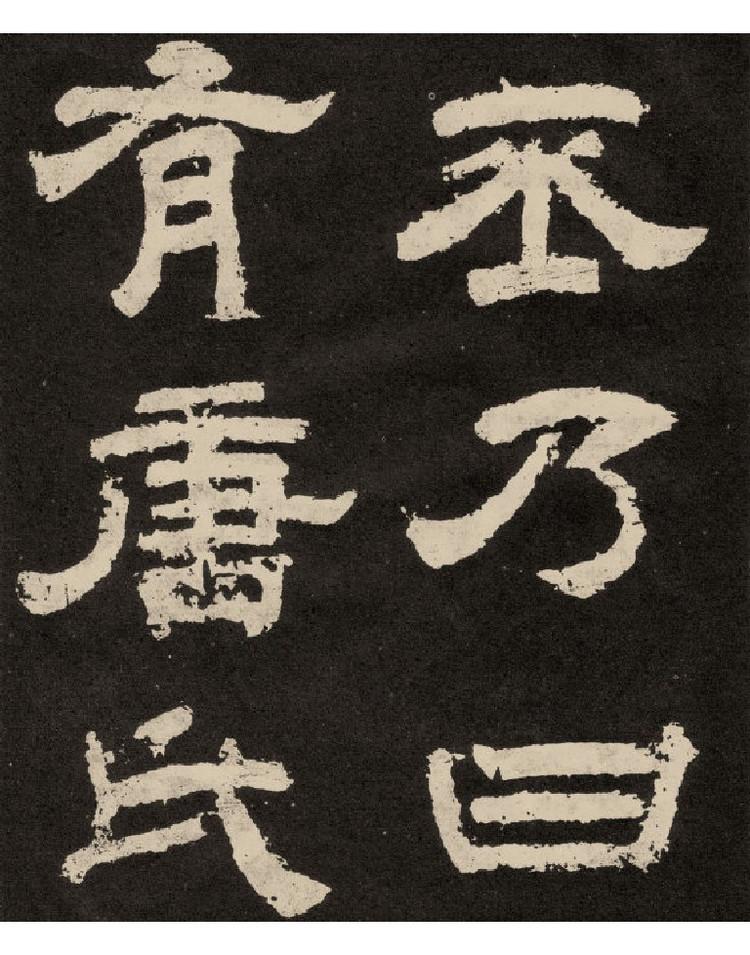 丕乃曰
有唐氏